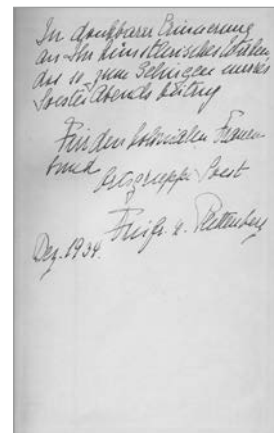 In dankbarer Erinnerung
an Ihr künstlerisches Wirken,
das so zum Gelingen unseres
Soester Abends beitrug
Für den kolonialen Frauen-
bund
Ortsgruppe Soest
Freifr. v. Plettenberg
Dez. 1934.